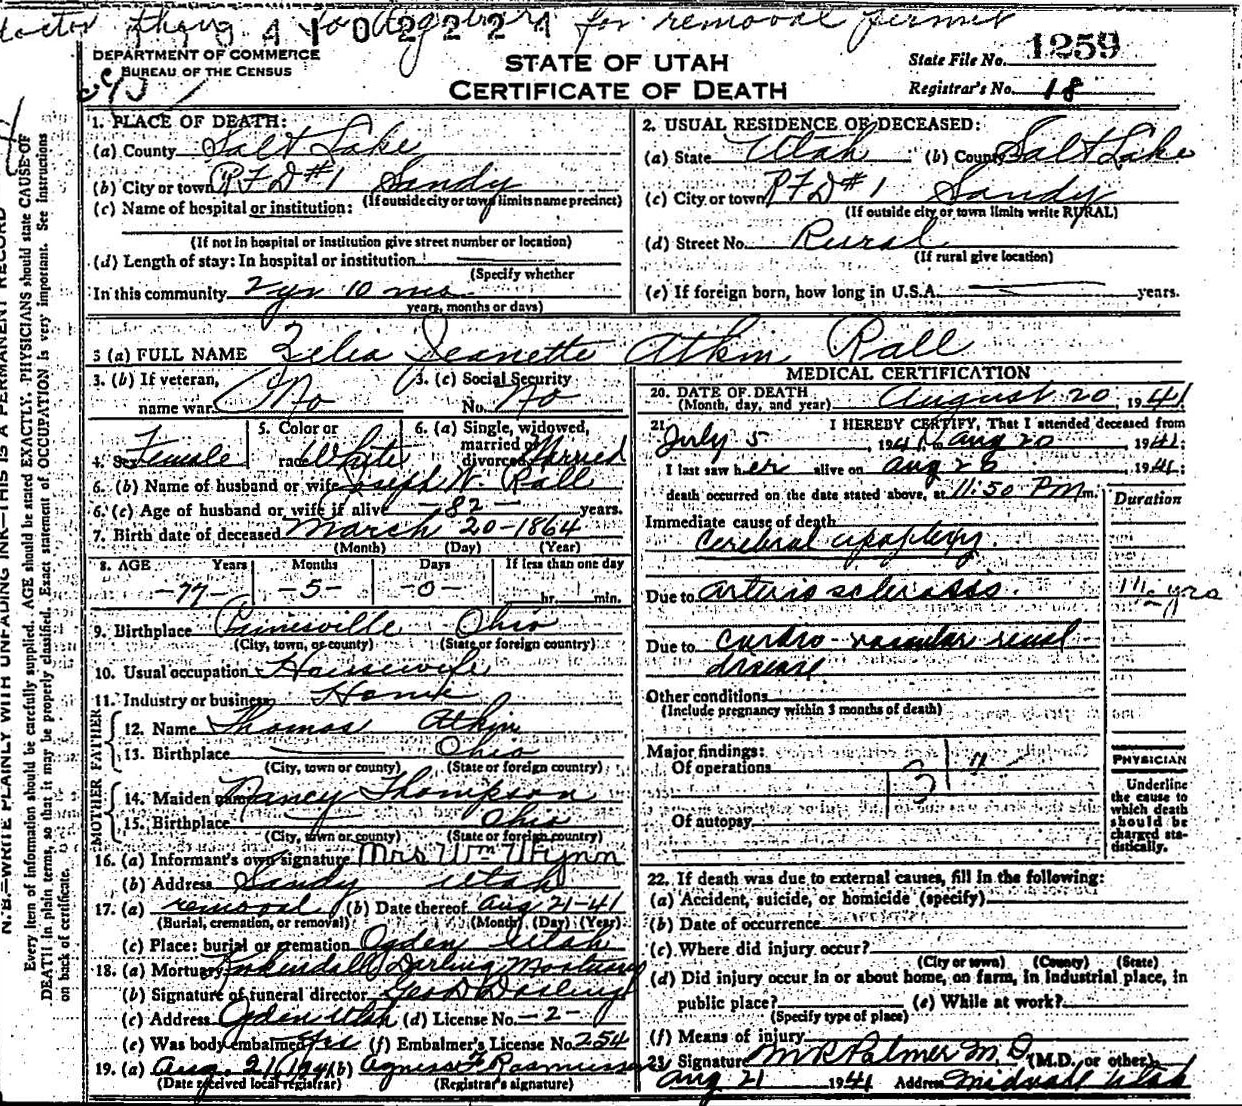 for removal permit
4 1 0 2 2 2 4
DEPARTMENT OF COMMERCE
BUREAU OF THE CENSUS
STATE OF UTAH
CERTIFICATE OF DEATH
State File No. 1259
Registrar's No. 18
1. PLACE OF DEATH:
(a) County Salt Lake
(b) City or town RFD #1 Sandy
(If outside city or town limits name precinct)
(c) Name of hospital or institution:
(If not in hospital or institution give street number or location)
(d) Length of stay: In hospital or institution
(Specify whether
In this community 2 yr 10 mo
years, months or days)
2. USUAL RESIDENCE OF DECEASED:
(a) State Utah (b) County Salt Lake
(c) City or town RFD #1 Sandy
(If outside city or town limits write RURAL)
(d) Street No. Rural
(If rural give location)
(e) If foreign born, how long in U.S.A. years.
3 (a) FULL NAME Zelia Jeanette Atkin Rall
3. (b) If veteran,
name war No
3. (c) Social Security
No. No
4. Sex Female
5. Color or
race White
6. (a) Single, widowed,
married or
divorced Married
6. (b) Name of husband or wife Joseph W. Rall
6. (c) Age of husband or wife if alive 82 years.
7. Birth date of deceased March 20-1864
(Month) (Day) (Year)
8. AGE Years Months Days If less than one day
-77- -5- -0- hr. min.
9. Birthplace Painesville Ohio
(City, town, or county) (State or foreign country)
10. Usual occupation Housewife
11. Industry or business Home
FATHER
12. Name Thomas Atkin
13. Birthplace Ohio
(City, town or county) (State or foreign country)
MOTHER
14. Maiden name Nancy Thompson
15. Birthplace Ohio
(City, town or county) (State or foreign country)
16. (a) Informant's own signature Mrs Wm Wynn
(b) Address Sandy Utah
17. (a) removal (b) Date thereof Aug 21-41
(Burial, cremation, or removal) (Month) (Day) (Year)
(c) Place: burial or cremation Ogden Utah
18. (a) Mortuary Darling Mortuary
(b) Signature of funeral director Geo D Darling
(c) Address Ogden Utah (d) License No. -2-
(e) Was body embalmed Yes (f) Embalmer's License No. 254
19. (a) Aug. 21, 1941 (b) Agness F Rasmussen
(Date received local registrar) (Registrar's signature)
MEDICAL CERTIFICATION
20. DATE OF DEATH August 20, 1941
(Month, day, and year)
21. I HEREBY CERTIFY, That I attended deceased from
July 5, 1941 to Aug 20 1941;
I last saw her alive on Aug 20 1941;
death occurred on the date stated above, at 11:50 P.m. m.
Duration
Immediate cause of death
cerebral apoplexy.
Due to arterio sclerosis.
Due to cardio-vascular renal
disease
Other conditions
(Include pregnancy within 3 months of death)
Major findings:
Of operations
Of autopsy
PHYSICIAN
Underline
the cause to
which death
should be
charged sta-
tistically.
22. If death was due to external causes, fill in the following:
(a) Accident, suicide, or homicide (specify)
(b) Date of occurrence
(c) Where did injury occur?
(City or town) (County) (State)
(d) Did injury occur in or about home, on farm, in industrial place, in
public place? (e) While at work?
(Specify type of place)
(f) Means of injury
23. Signature M R Palmer M.D. (M.D. or other)
Aug 21 1941 Address Midvale Utah
N. B.—WRITE PLAINLY WITH UNFADING INK—THIS IS A PERMANENT RECORD
Every item of information should be carefully supplied. AGE should be stated EXACTLY. PHYSICIANS should state CAUSE OF
DEATH in plain terms, so that it may be properly classified. Exact statement of OCCUPATION is very important. See instructions
on back of certificate.